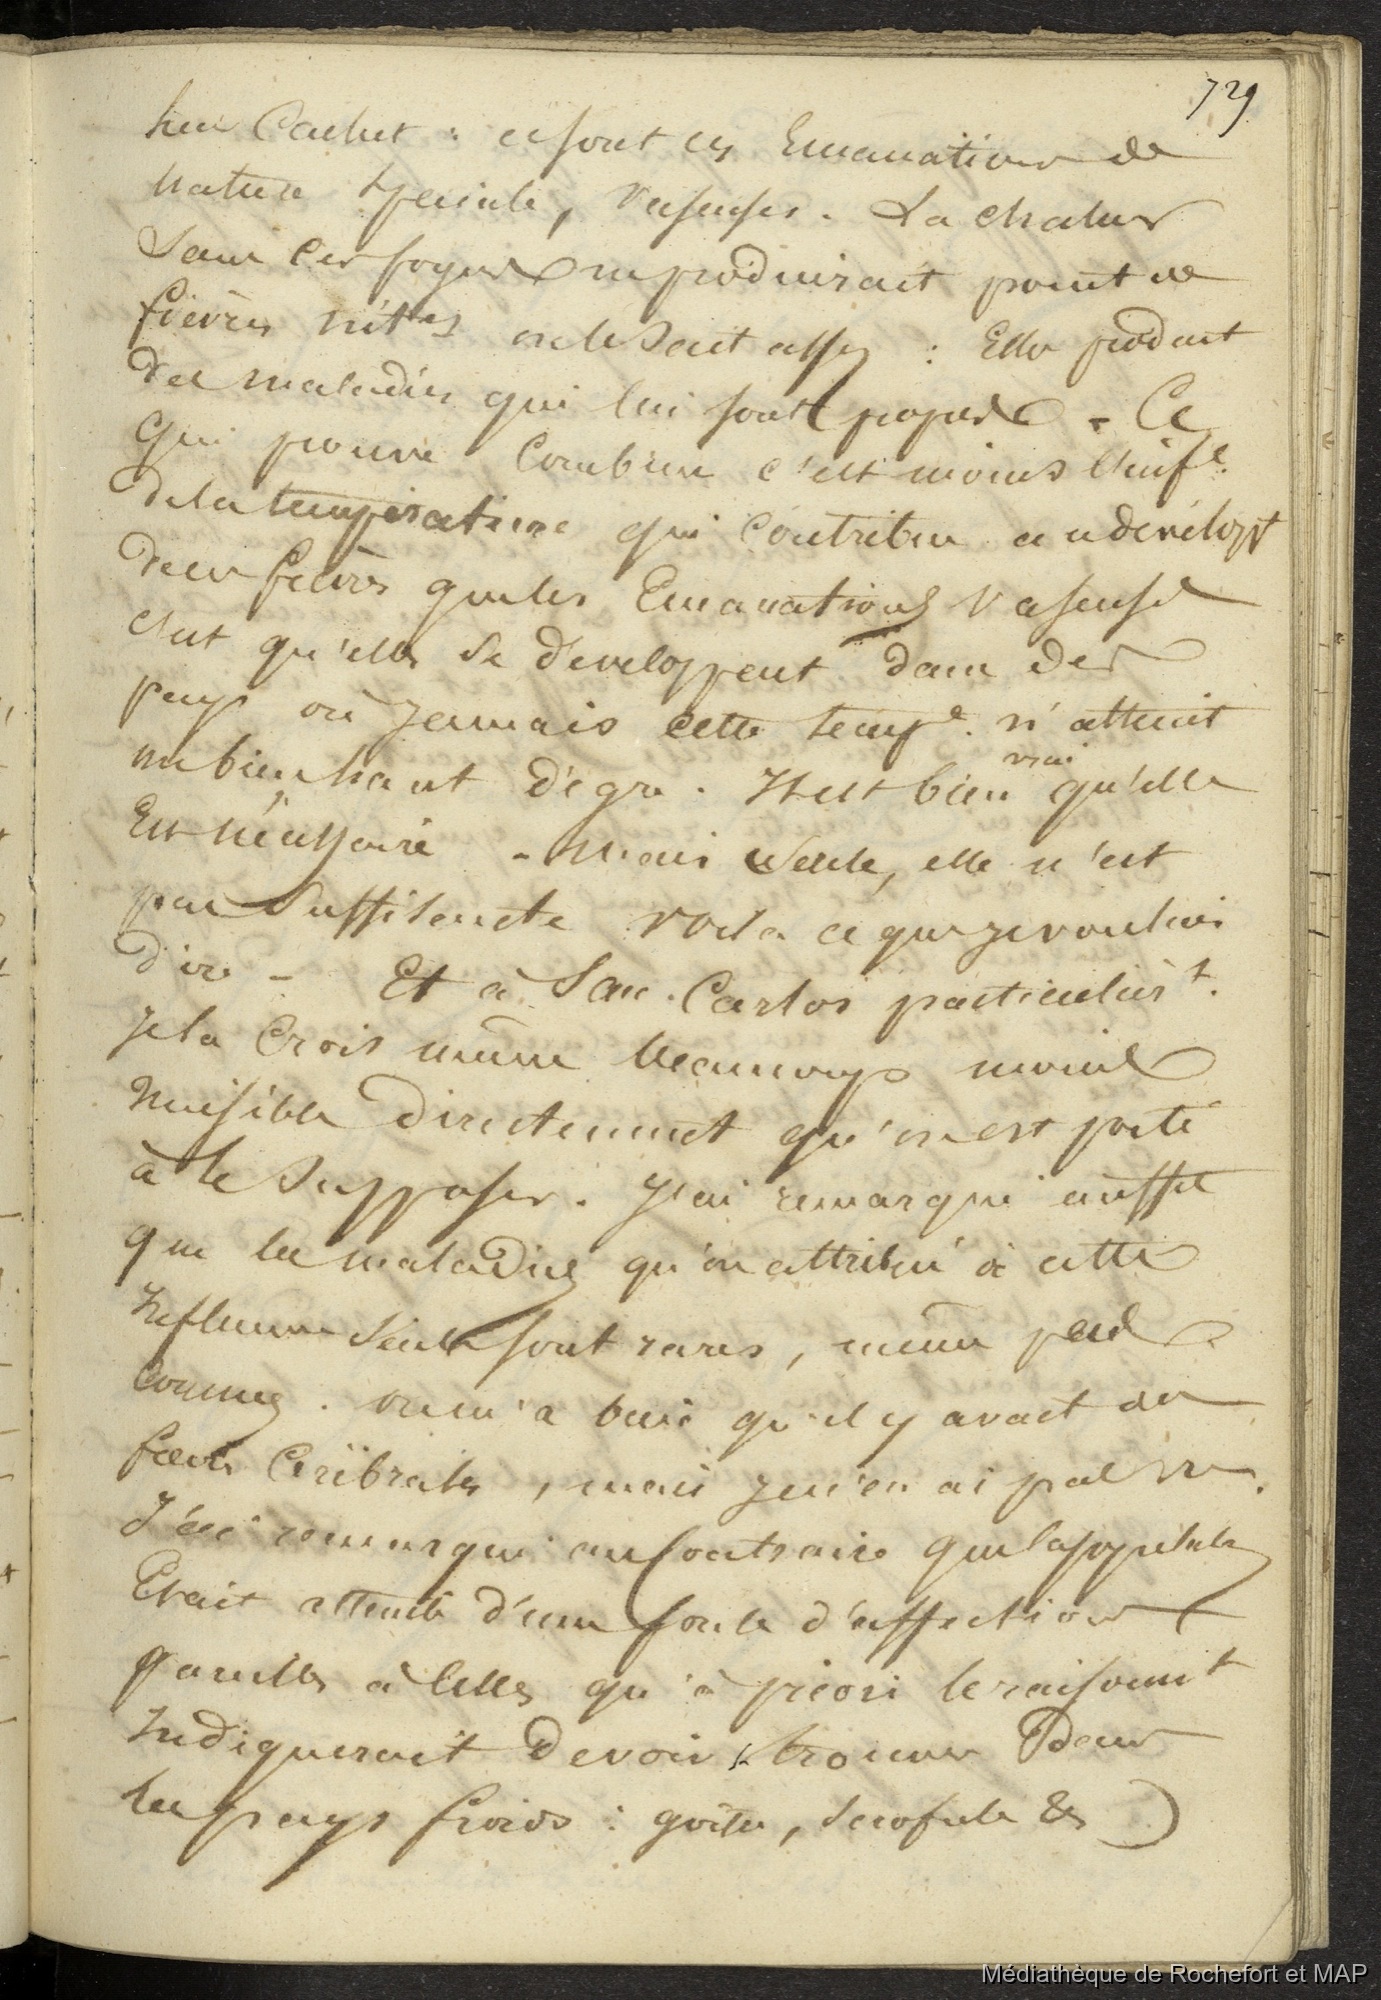 729
leur cachet : ce sont ces Emanations de
nature speciale, vaseuses. La chaleur
sans ces foyers ne produirait point de
fièvres intes on le sait assez : Elle produit
des maladies qui lui sont propres - Ce
qui prouve combien c'est moins l'infe.
de la température qui contribue au developt
de ces fièvres que les Emanations vaseuses
c'est qu'elles se développent dans des
pays où jamais cette tempe. n'atteint
un bien haut dégré. Il est bien vrai qu'elle
Est nécessaire - Mais seule, elle n'est
pas suffisante voila ce que je voulais
dire - Et à San. Carlos particulièrt.
Je la crois même beaucoup moins
nuisible directement qu'on est porté
à le supposer. J'ai remarqué aussi
que les maladies qu'on attribue à cette
Influence seule sont rares, même peu
connues. on m'a dit qu'il y avait des
fièvres cérébrales, mais je n'en ai pas vu.
J'ai remarqué au contraire que la popul
Etait atteinte d'une foule d'affections
pareilles à celles qu'à priori le raisonnt
Indiquerait devoir se trouver dans
les pays froids : goître, scrofule &
Médiathèque de Rochefort et MAP